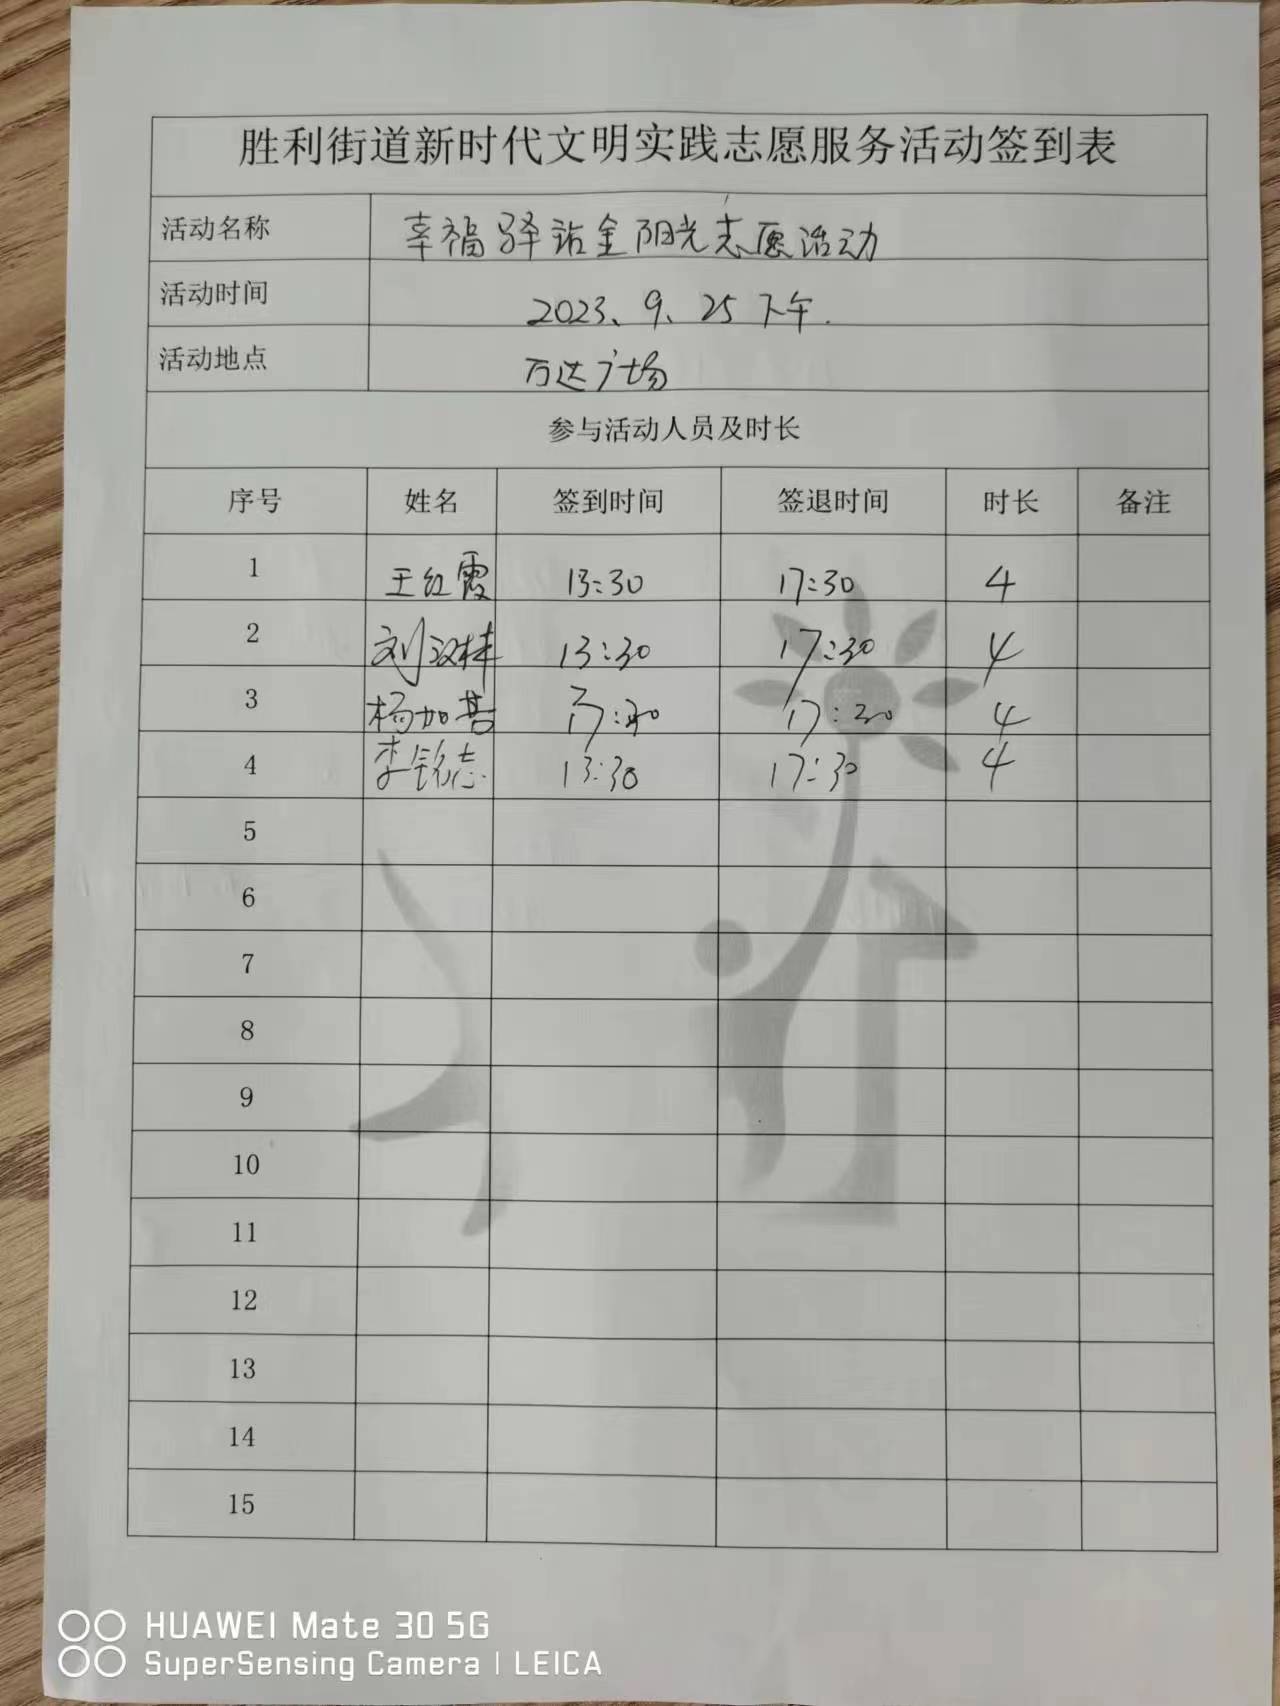 胜利街道新时代文明实践志愿服务活动签到表
活动名称 幸福驿站金阳光志愿活动
活动时间 2023、9、25 下午.
活动地点 万达广场
参与活动人员及时长
序号 姓名 签到时间 签退时间 时长 备注
1 王红霞 13:30 17:30 4
2 刘汉桂 13:30 17:30 4
3 杨加 :30 17:30 4
4 李铭志 13:30 17:30 4
5
6
7
8
9
10
11
12
13
14
15
HUAWEI Mate 30 5G
SuperSensing Camera | LEICA